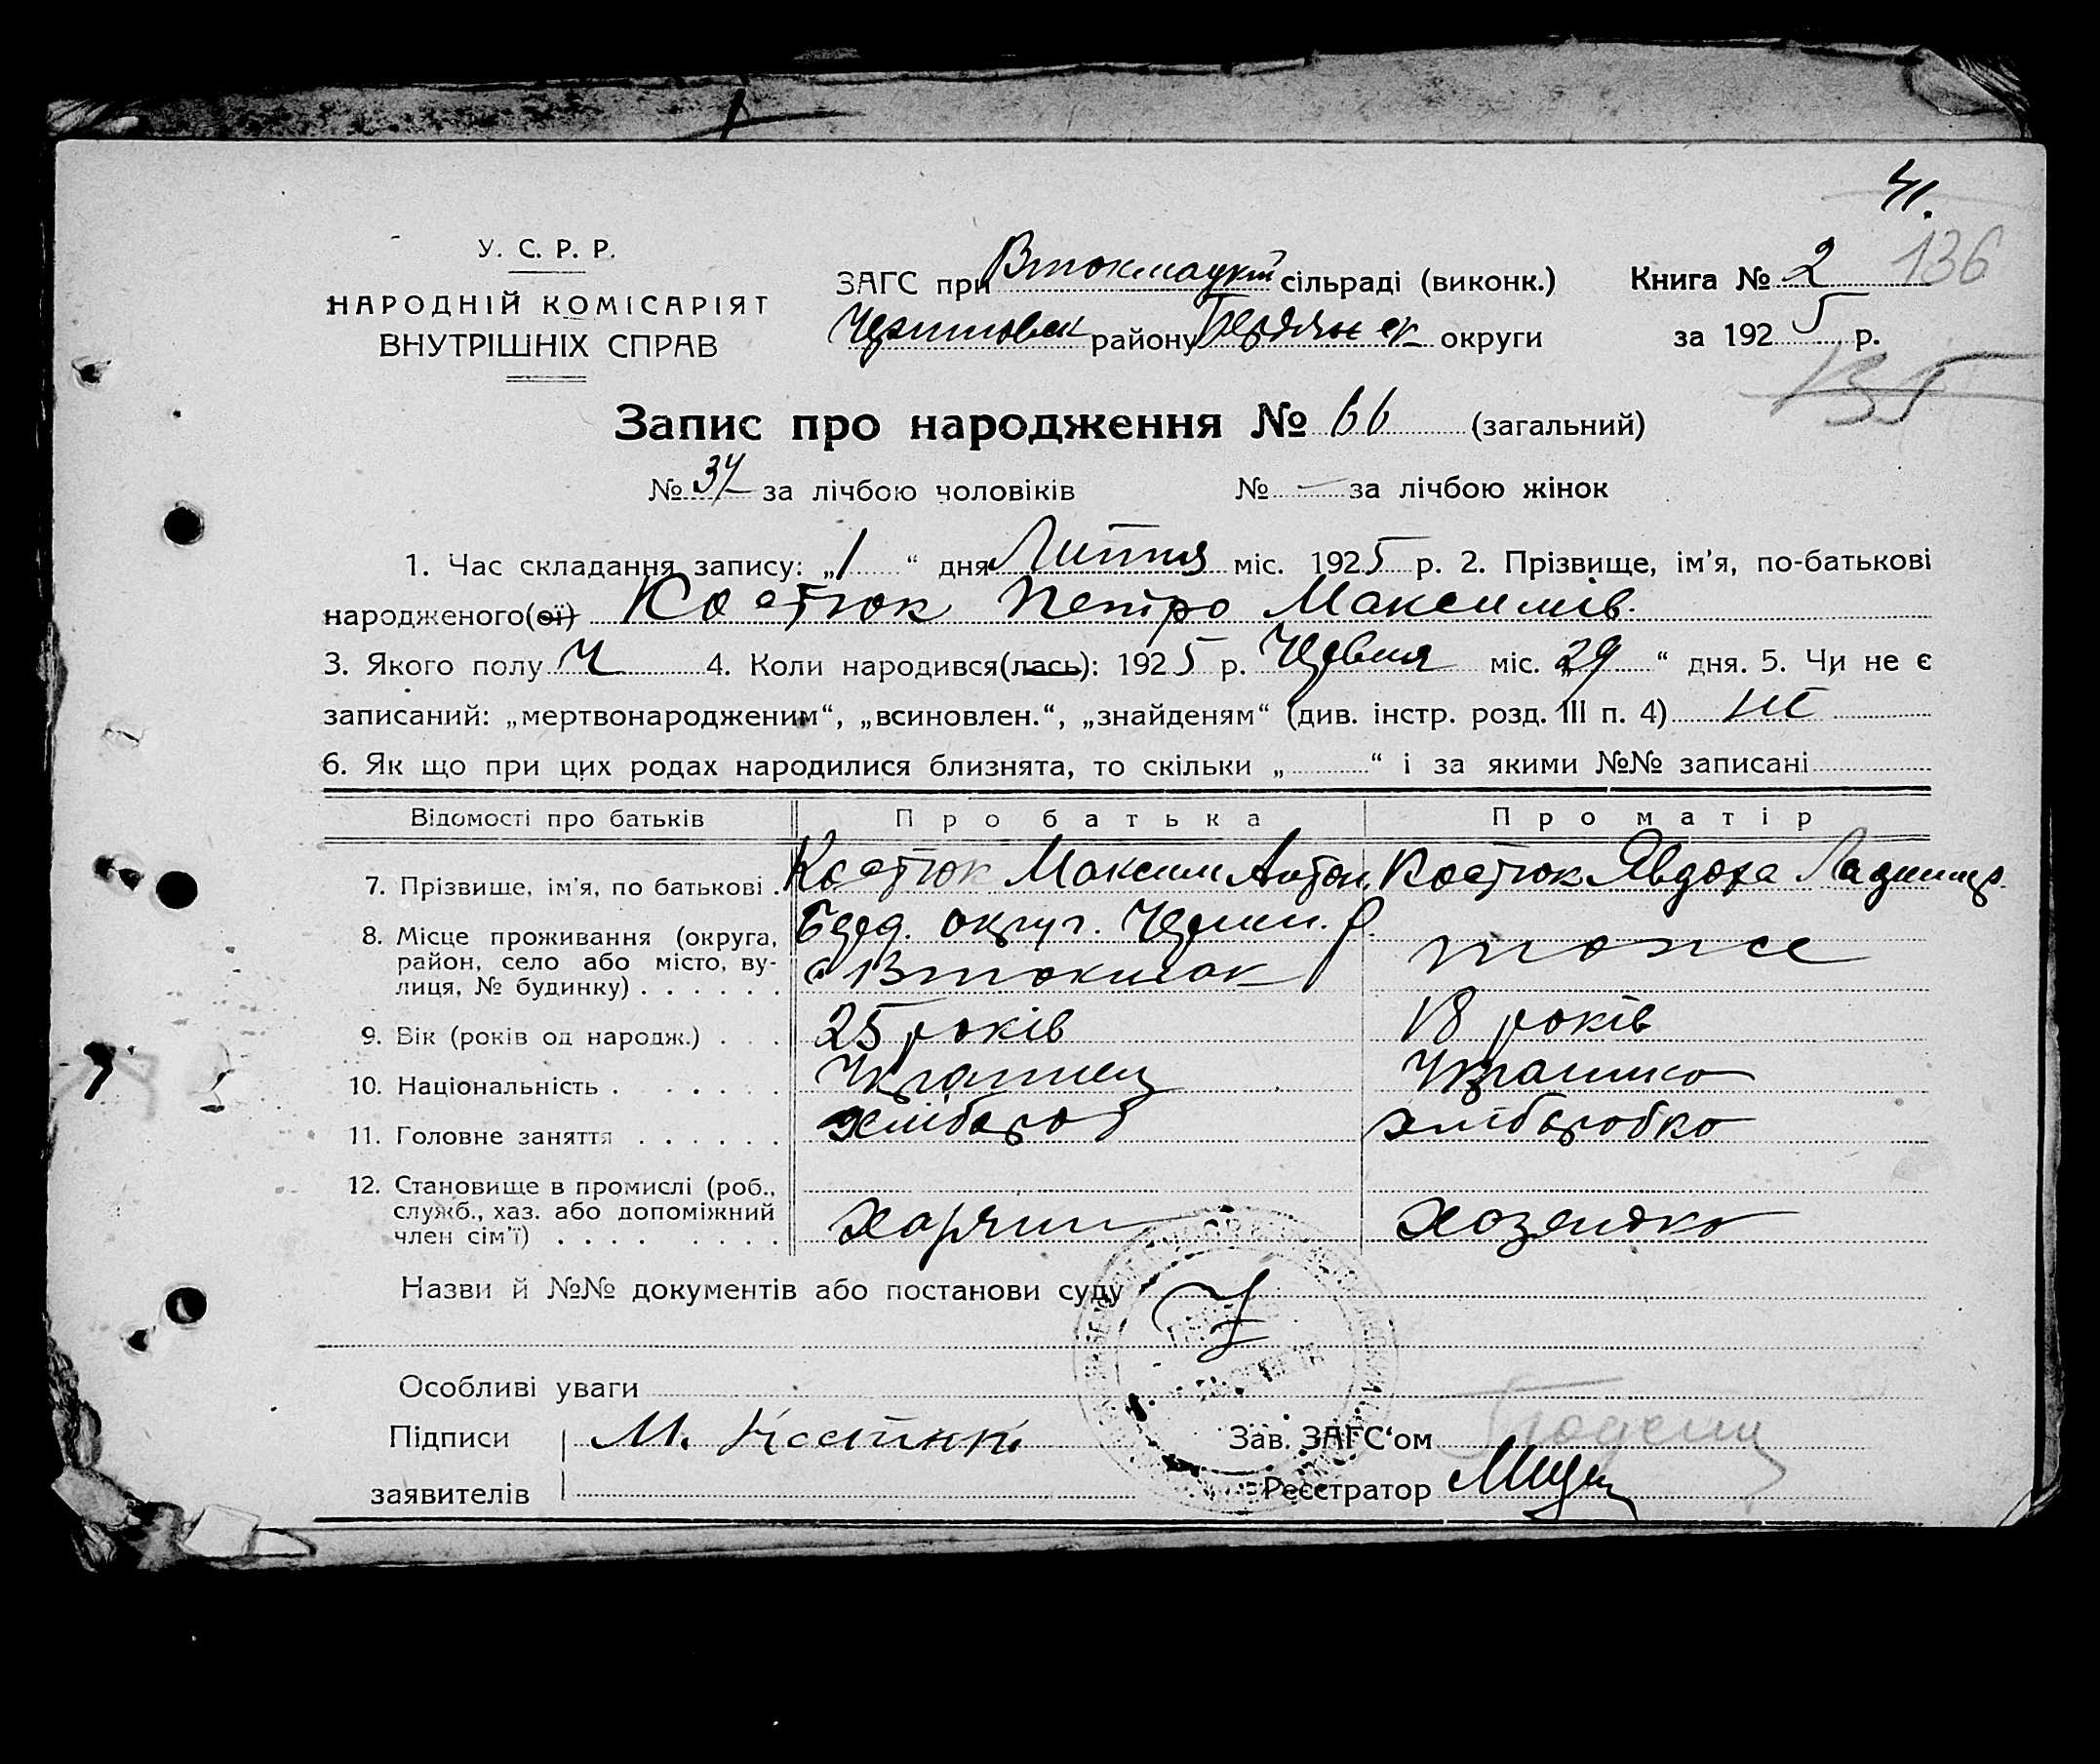 41.
136
У. С. Р. Р.
НАРОДНІЙ КОМІСАРІЯТ
ВНУТРІШНІХ СПРАВ
ЗАГС при Втокмацкій сільраді (виконк.)
району Бердянск округи
Книга № 2
за 1925 р.
135
Запис про народження № 66 (загальний)
№ 34 за лічбою чоловіків № — за лічбою жінок
1. Час складання запису: „1“ дня Липня міс. 1925 р. 2. Прізвище, ім'я, по-батькові
народженого(ої) Костюк Петро Максимів.
3. Якого полу Ч 4. Коли народився(лась): 1925 р. Червня міс. „29“ дня. 5. Чи не є
записаний: „мертвонародженим“, „всиновлен.“, „знайденям“ (див. інстр. розд. III п. 4) ні
6. Як що при цих родах народилися близнята, то скільки „ “ і за якими №№ записані
Відомості про батьків Про батька Про матір
7. Прізвище, ім'я, по батькові . Костюк Максим Антон. Костюк Явдоха
8. Місце проживання (округа, район, село або місто, вулиця, № будинку) . . . . . . Берд. округ. Черни. р.
с Втокмак тоже
9. Вік (років од народж.) . . . 25 років 18 років
10. Національність . . . . . . Украинец Украинка
11. Головне заняття . . . . . . хлібороб хліборобка
12. Становище в промислі (роб., служб., хаз. або допоміжний член сім'ї) . . . . . . . . Хозяйка
Назви й №№ документів або постанови суду
Особливі уваги
Підписи М. Костюк Зав. ЗАГС'ом
заявителів Реєстратор